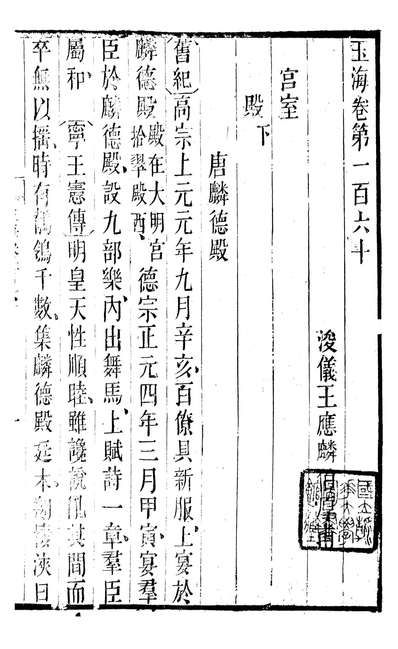 玉海卷第一百六十
浚儀王應麟伯厚甫
宮室
殿下
唐麟德殿
舊紀高宗上元元年九月辛亥百僚具新服上宴於
麟德殿殿在大明宮拾翠殿西德宗正元四年三月甲寅宴羣
臣於麟德殿設九部樂內出舞馬上賦詩一章羣臣
屬和寧王憲傳明皇天性順睦雖讒亂其間而
卒無以搖時有鶺鴒千數集麟德殿廷木翔棲浹日